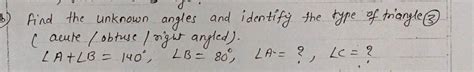 Find the unknown angles and identify the type of triangle ③
( acute / obtuse / right angled).
∠A+∠B = 140°, ∠B = 80°, ∠A = ?, ∠C = ?